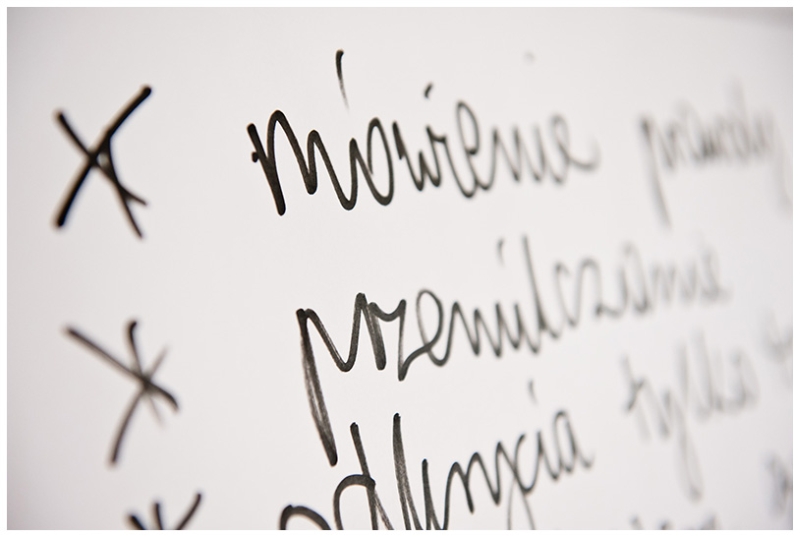 mówienie prawdy
przemilczanie
odkrycia tylko